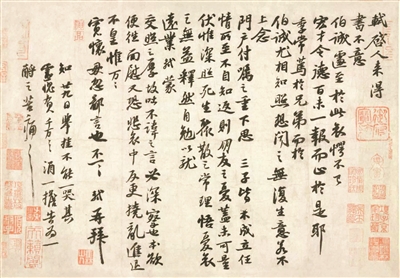 軾啓人來得
書不意
伯誠遽至於此哀愕不已
宏才令德百未一報而止於是耶
季常篤於兄弟而於
伯誠尤相知照想聞之無復生意若不
上念
門戶付囑之重下思三子皆不成立任
情所至不自知返則朋友之憂蓋未可量
伏惟深照死生聚散之常理悟憂哀
之無益釋然自勉以就
遠業軾蒙
交照之厚故吐不諱之言必深察也本欲
便往面慰又恐悲哀中反更撓亂進退
不皇惟萬萬
寬懷毋忽鄙言也不一一軾再拜
知廿九日舉掛不能一哭其
靈愧負千萬千萬酒一擔告為一
酹之苦痛苦痛